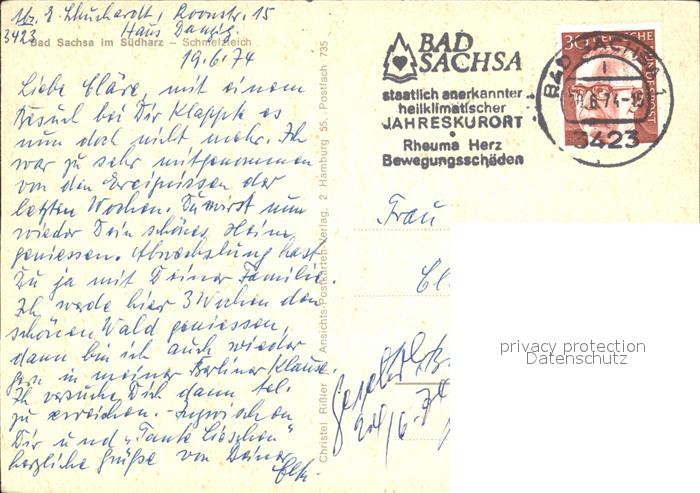 Abz. E. Schuchardt, Roonstr. 15
3423 Haus Danzig
Bad Sachsa im Südharz – Schmelzteich
19.6.74
Liebe Cläre, mit einem
Besuch bei Dir klappte es
nun doch nicht mehr. Ich
war zu sehr mitgenommen
von den Ereignissen der
letzten Wochen. Du wirst nun
wieder Dein schönes Heim
geniessen. Abwechslung hast
Du ja mit Deiner Familie.
Ich werde hier 3 Wochen den
schönen Wald geniessen,
dann bin ich auch wieder
gern in meiner Berliner Klause.
Ich versuche Dich dann tel.
zu erreichen. Inzwischen
Dir und "Tante Lieschen"
herzliche Grüße von Deiner
Elk.
Christel Rißler Ansichts-Postkarten-Verlag, 2 Hamburg 55, Postfach 735
BAD
SACHSA
staatlich anerkannter
heilklimatischer
JAHRESKURORT
Rheuma Herz
Bewegungsschäden
30 DEUTSCHE BUNDESPOST
BAD SACHSA 1
6.74-15
3423
Frau
Cl
20/6.74
privacy protection
Datenschutz